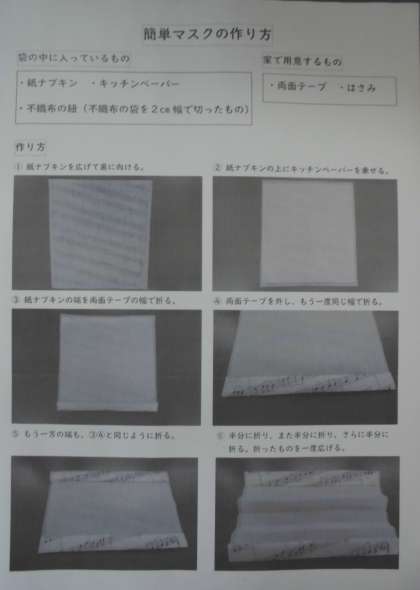 簡単マスクの作り方
袋の中に入っているもの
・紙ナプキン ・キッチンペーパー
・不織布の紐（不織布の袋を2㎝幅で切ったもの）
家で用意するもの
・両面テープ ・はさみ
作り方
① 紙ナプキンを広げて裏に向ける。
② 紙ナプキンの上にキッチンペーパーを乗せる。
③ 紙ナプキンの端を両面テープの幅で折る。
④ 両面テープを外し、もう一度同じ幅で折る。
⑤ もう一方の端も、③④と同じように折る。
⑥ 半分に折り、また半分に折り、さらに半分に
折る。折ったものを一度広げる。